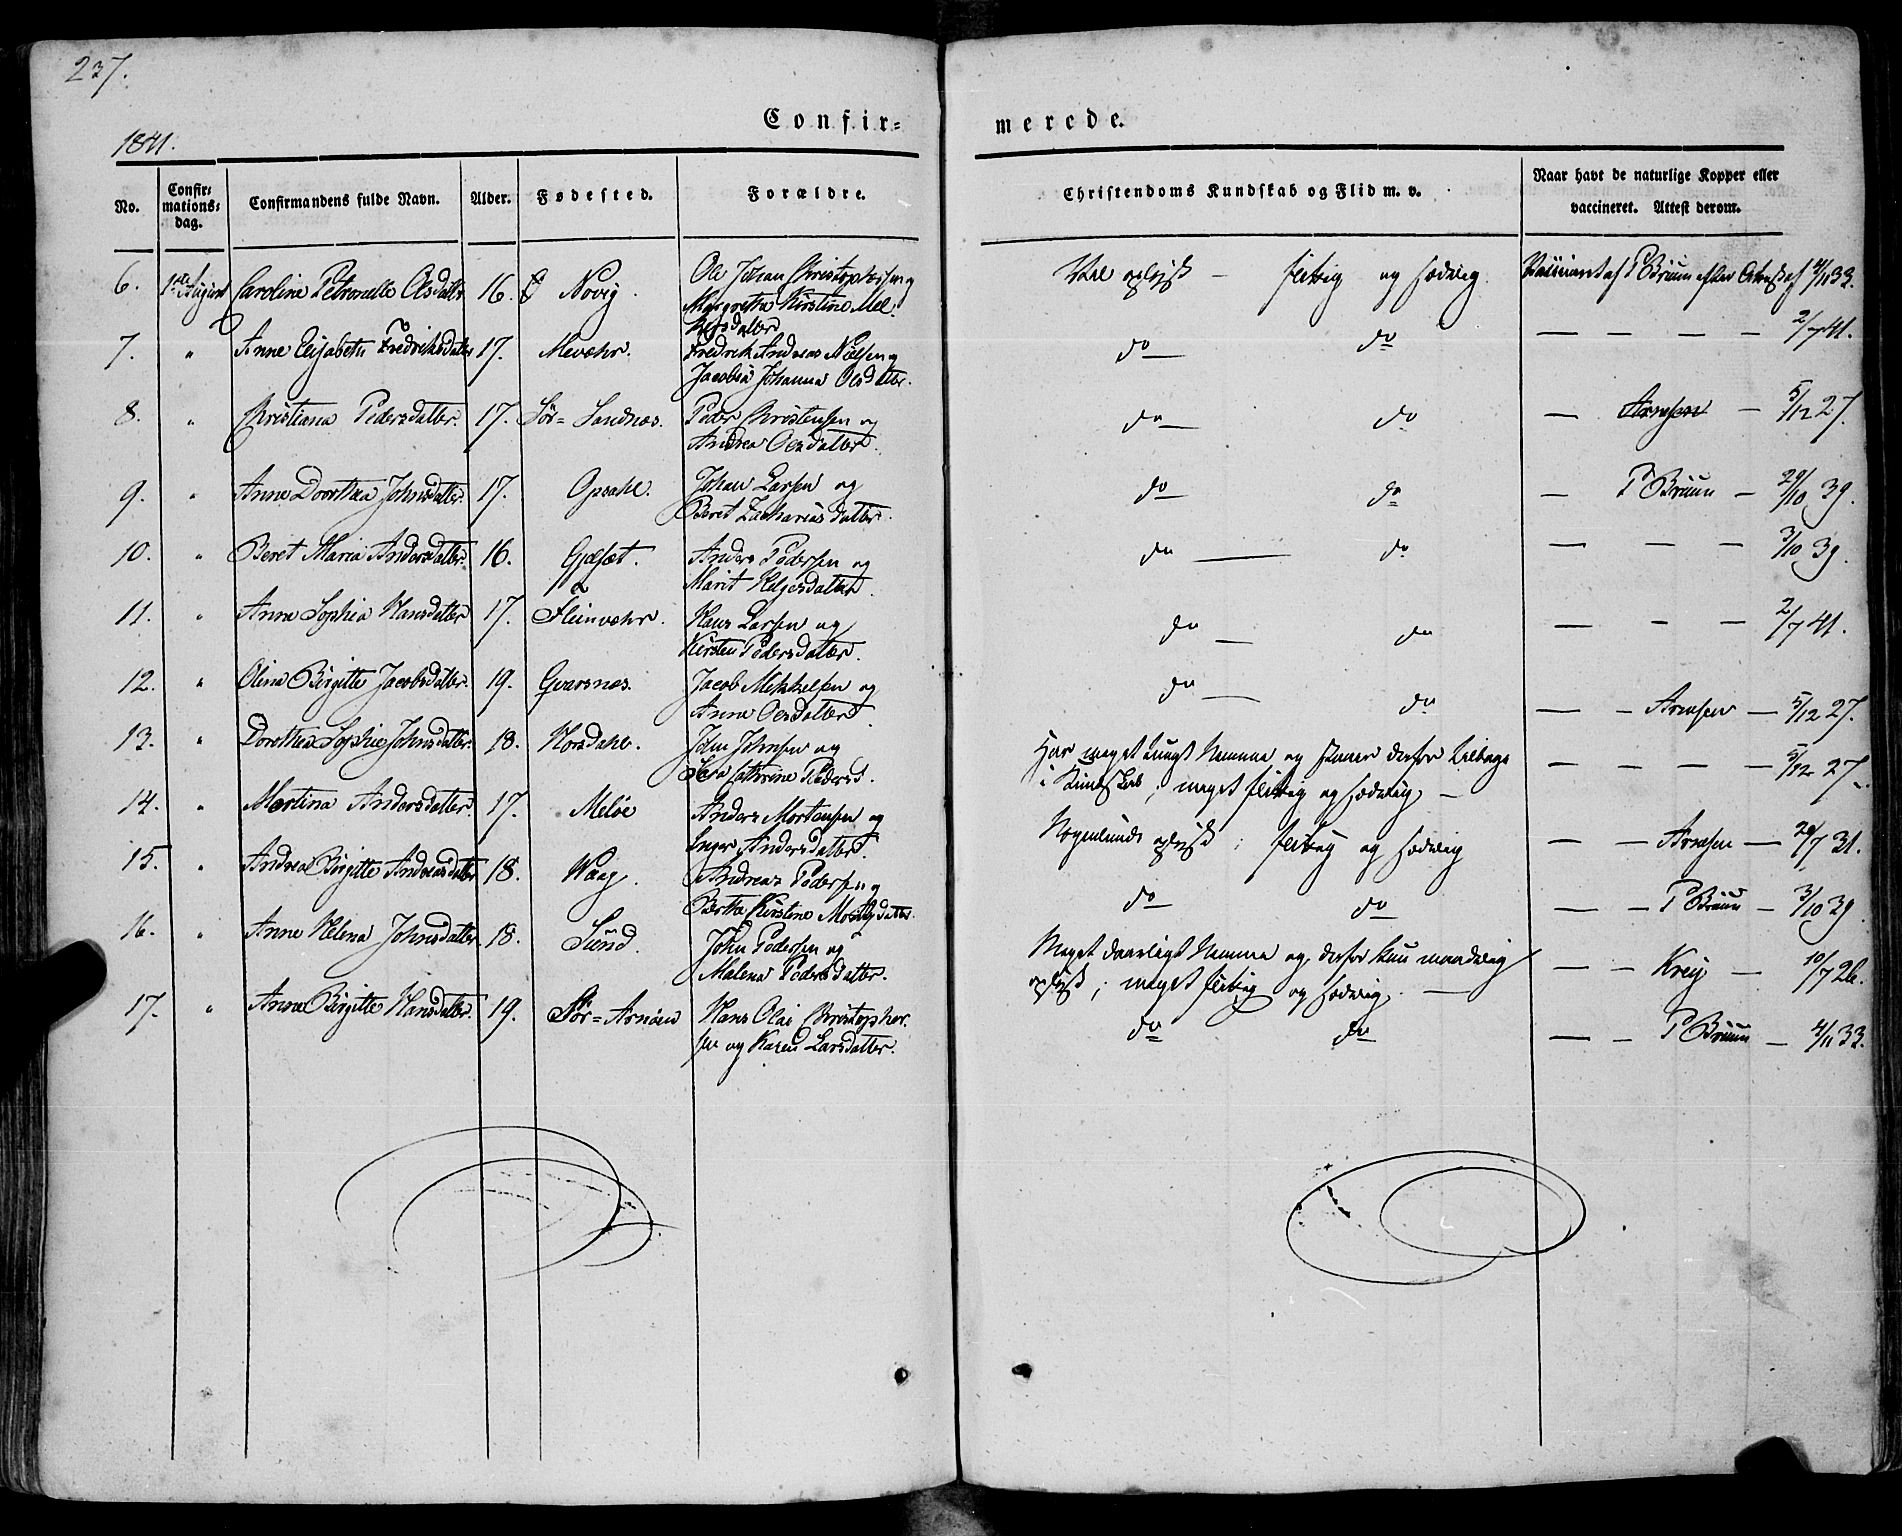 237.
Confir= merede.
1841.
No.
Confir=
mations=
dag.
Confirmandens fulde Navn.
Alder.
Fødested.
Forældre.
Christendoms Kundskab og Flid m. v.
Naar havt de naturlige Kopper eller
vaccineret. Attest derom.
6. 1ste August Caroline Petronelle Olsdatter 16. Novig. Ole Johan Christophersen og
Margrethe Kirstine Mel-
kersdatter
Vel oplyst – flittig og sædelig. Vaccineret af P Bruun efter Attest af 4/11 33.
7. " Anne Elisabeth Fredriksdatter 17. Mevæhr. Fredrik Andreas Nielsen og
Jacobia Johanna Olsdatter.
do — do — — — — 2/7 41.
8. " Christiana Pedersdatter. 17. Sör=Sandnæs. Peder Christensen og
Andrea Olsdatter.
do — do — Arnesen — 5/12 27.
9. " Anne Dorthea Johnsdatter 17. Opsahl. Johan Larsen og
Beret Zachariasdatter.
do — do — P Bruun — 29/10 39.
10. " Beret Maria Andersdatter. 16. Gjæsæt. Anders Pedersen og
Marit Helgesdatter.
do — do — — — 3/10 39.
11. " Anne Sophia Hansdatter 17. Fleinvæhr. Hans Larsen og
Kirsten Pedersdatter.
do — do — — — 2/7 41.
12. " Olina Birgitte Jacobsdatter. 19. Gvarsnæs. Jacob Mikkelsen og
Anne Olsdatter.
do — do — — Arnesen — 5/12 27.
13. " Dorothea Sophie Johnsdatter. 18. Horsdahl. John Johnsen og
Sara Cathrine Pedersd.
Har meget tungt Nemme og staaer derfor tilbage
i Kundskab; meget flittig og sædelig. —
— — — — 5/12 27.
14. " Martina Andersdatter. 17. Meløe Anders Mortensen og
Inger Andersdatter.
Nogenlunde oplyst; flittig og sædelig — — Arnesen — 29/7 31.
15. " Andrea Birgitte Andreasdatter 18. Waag. Andreas Pedersen og
Bertha Kirstine Mortensdatter.
do — do — — P Bruun — 3/10 39.
16. " Anne Helena Johnsdatter. 18. Sund. John Pedersen og
Malena Pedersdatter.
Meget daarligt Nemme og derfor kun maadelig
oplyst; meget flittig og sædelig. —
— — Krey — 10/7 26.
17. " Anne Birgitte Hansdatter. 19. Sör=Arnöen Hans Olai Christopher-
sen og Karen Larsdatter.
do — do — — P Bruun — 4/11 33.